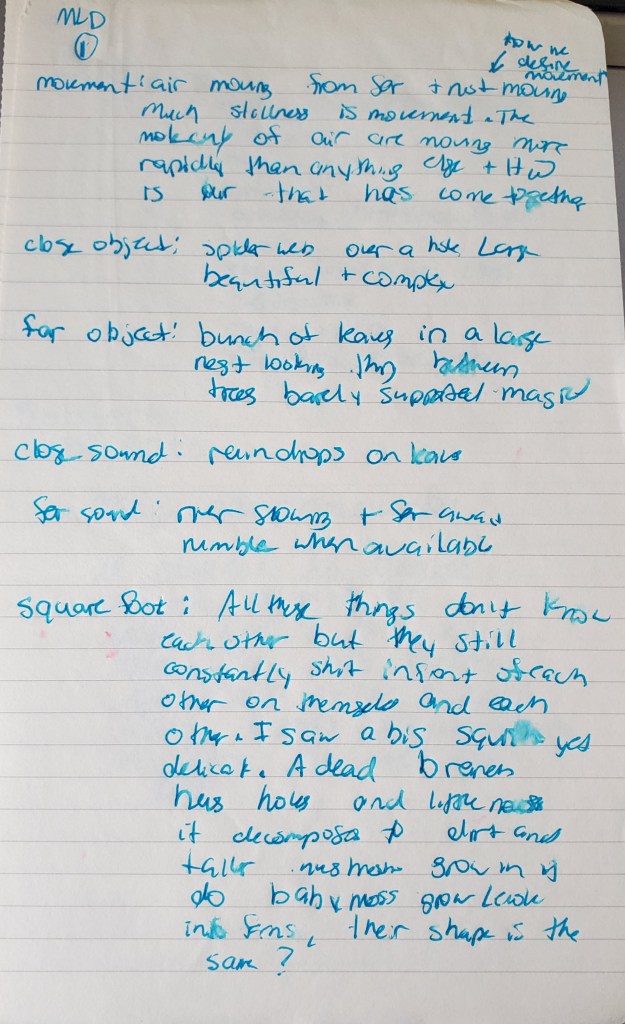 MLD
①
how we
define
movement
movement: air moving from far + not moving
much stillness is movement. The
makeup of air are moving more
rapidly than anything else + HW
is our that has come together
close object: spider web over a hole. Large
beautiful + complex
far object: bunch of leaves in a large
nest looking thing between
trees barely supported - magic
close sound: raindrops on leaves
far sound: river flowing + far away
rumble when available
square foot: All these things don't know
each other but they still
constantly shit infront of each
other on themselves and each
other. I saw a big yes
delicate. A dead
has holes and little
it decomposes to dirt and
taller mushroom grow in it
do baby moss grow
into ferns, their shape is the
same?